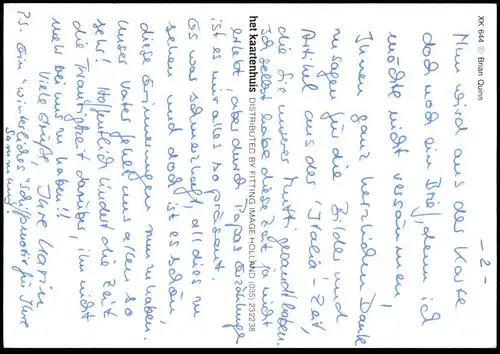 - 2 -
Nun wird aus der Karte
doch noch ein Brief, denn ich
möchte nicht versäumen,
Ihnen ganz herzlichen Dank
zu sagen für die Bilder und
Artikel aus der "Italia"-Zeit,
die Sie unserer Mutti gesandt haben.
Ich selbst habe diese Zeit ja nicht
erlebt, aber durch Papas Erzählungen
ist es mir alles so präsent.
Es war schmerzhaft, all dies zu
sehen und doch ist es schön,
diese Erinnerungen nun zu haben.
Unser Vater fehlt uns allen so
sehr! Hoffentlich lindert die Zeit
die Traurigkeit darüber, ihn nicht
mehr bei uns zu haben!!
Viele Grüße, Ihre Karin
P.S. Ein "winterliches" Schiffsmotiv für Ihre
Sammlung!
het kaartenhuis DISTRIBUTED BY FITTING IMAGE HOLLAND (035) 232238
XK 644 © Brian Quinn